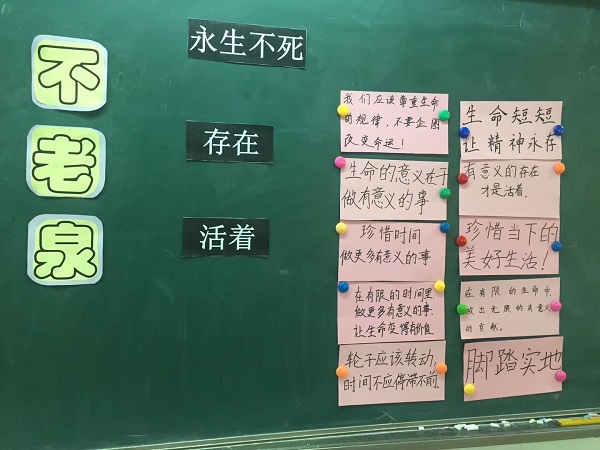 不
老
泉
永生不死
存在
活着
我们应该尊重生命
的规律，不要企图
改变命运！
生命的意义在于
做有意义的事
珍惜时间
做更多有意义的事
在有限的时间里
做更多有意义的事
让生命变得有价值
轮子应该转动，
时间不应停滞不前.
生命短短
让精神永存
有意义的存在
才是活着.
珍惜当下的
美好生活！
在有限的生命中
做出无限的有意义
的贡献.
脚踏实地